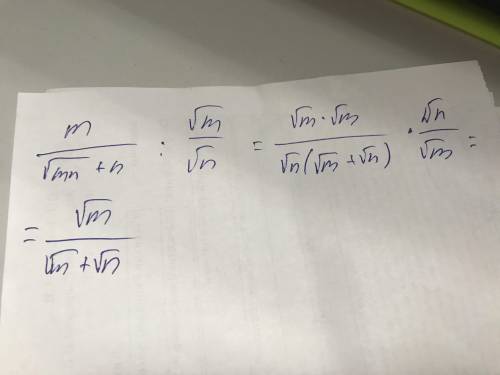 m/(√mn + n) : √m/√n = (√m · √m)/(√n(√m + √n)) · √n/√m =
= √m/(√m + √n)